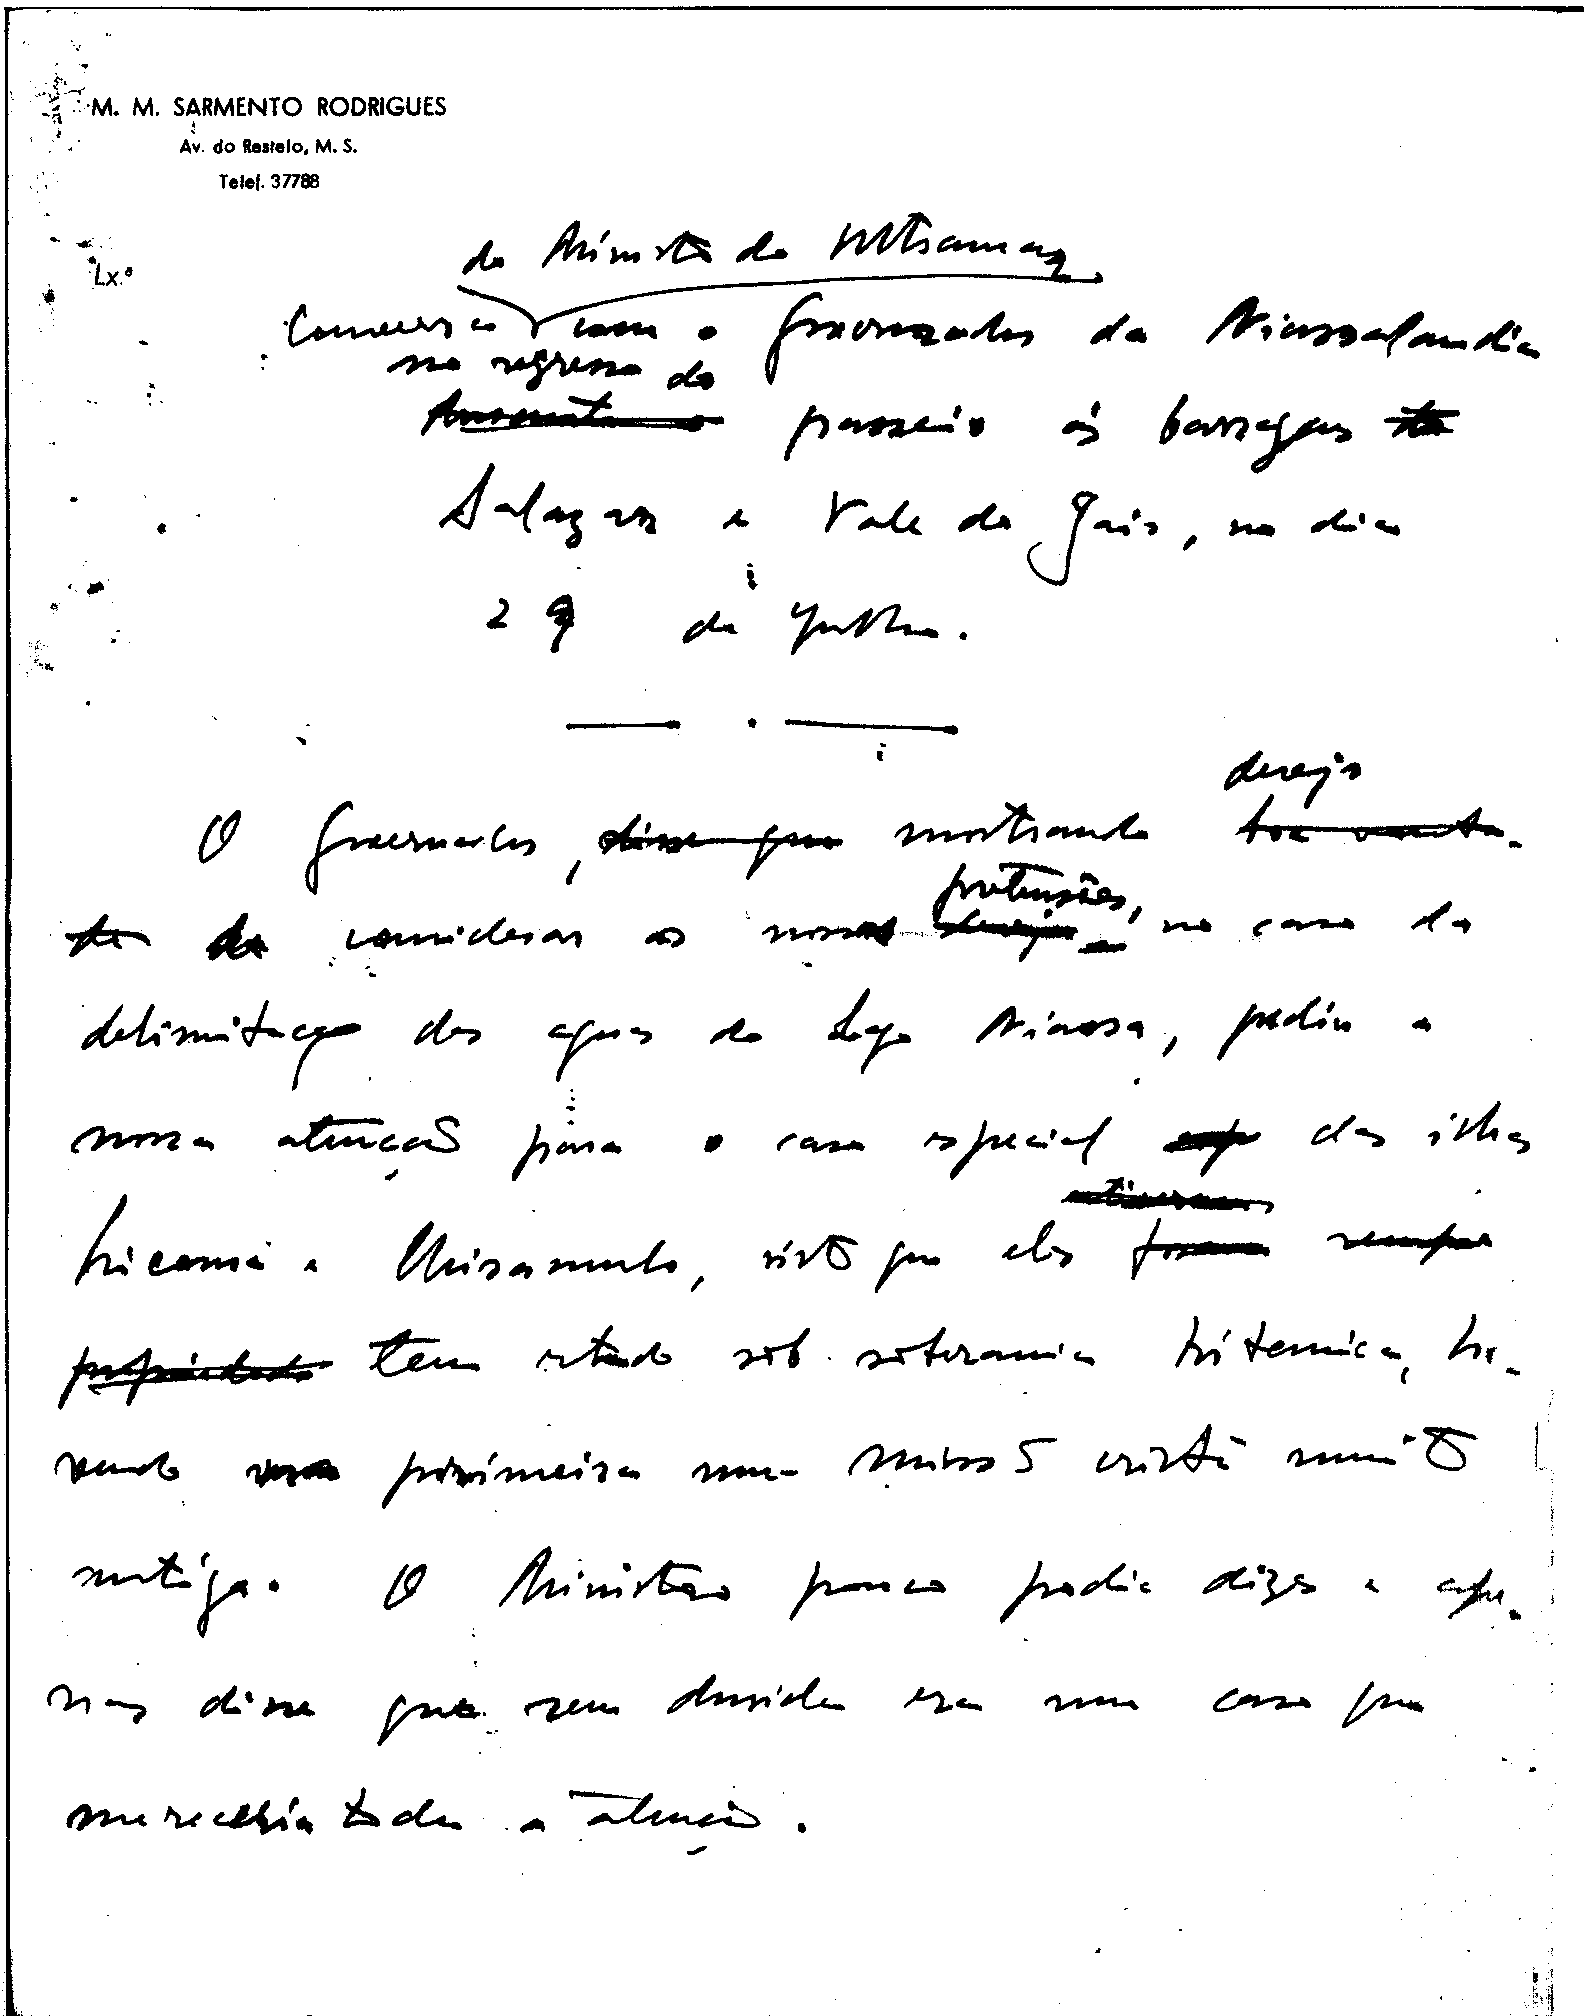 M. M. SARMENTO RODRIGUES
Av. do Restelo, M. S.
Telef. 37788
Lx.ª
do Ministro do Ultramar
Conversa com o Governador da Niassalandia
no regresso do
passeio às barragens
Salazar e Vale do Gaio, no dia
29 de Julho.
desejo
O Governador, disse que mostrando boa vonta-
de de considerar os nossos
pretensões,
desejos no caso da
delimitação das aguas do Lago Niassa, pediu a
nossa atenção para o caso especial das ilhas
Licoma e Chisamulo, visto que elas foram sempre
estiveram
propriedade tem estado sob soberania britanica, ha-
vendo na primeira uma missão cristã muito
antiga. O Ministro pouco podia dizer e ape-
nas disse que sem duvida era um caso que
merecia toda a atenção.